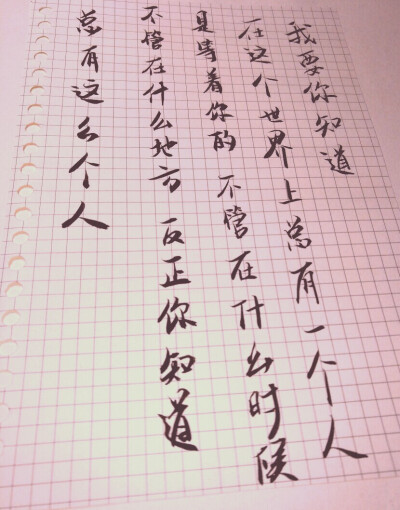 我要你知道
在这个世界上总有一个人
是等着你的 不管在什么时候
不管在什么地方 反正你知道
总有这么个人